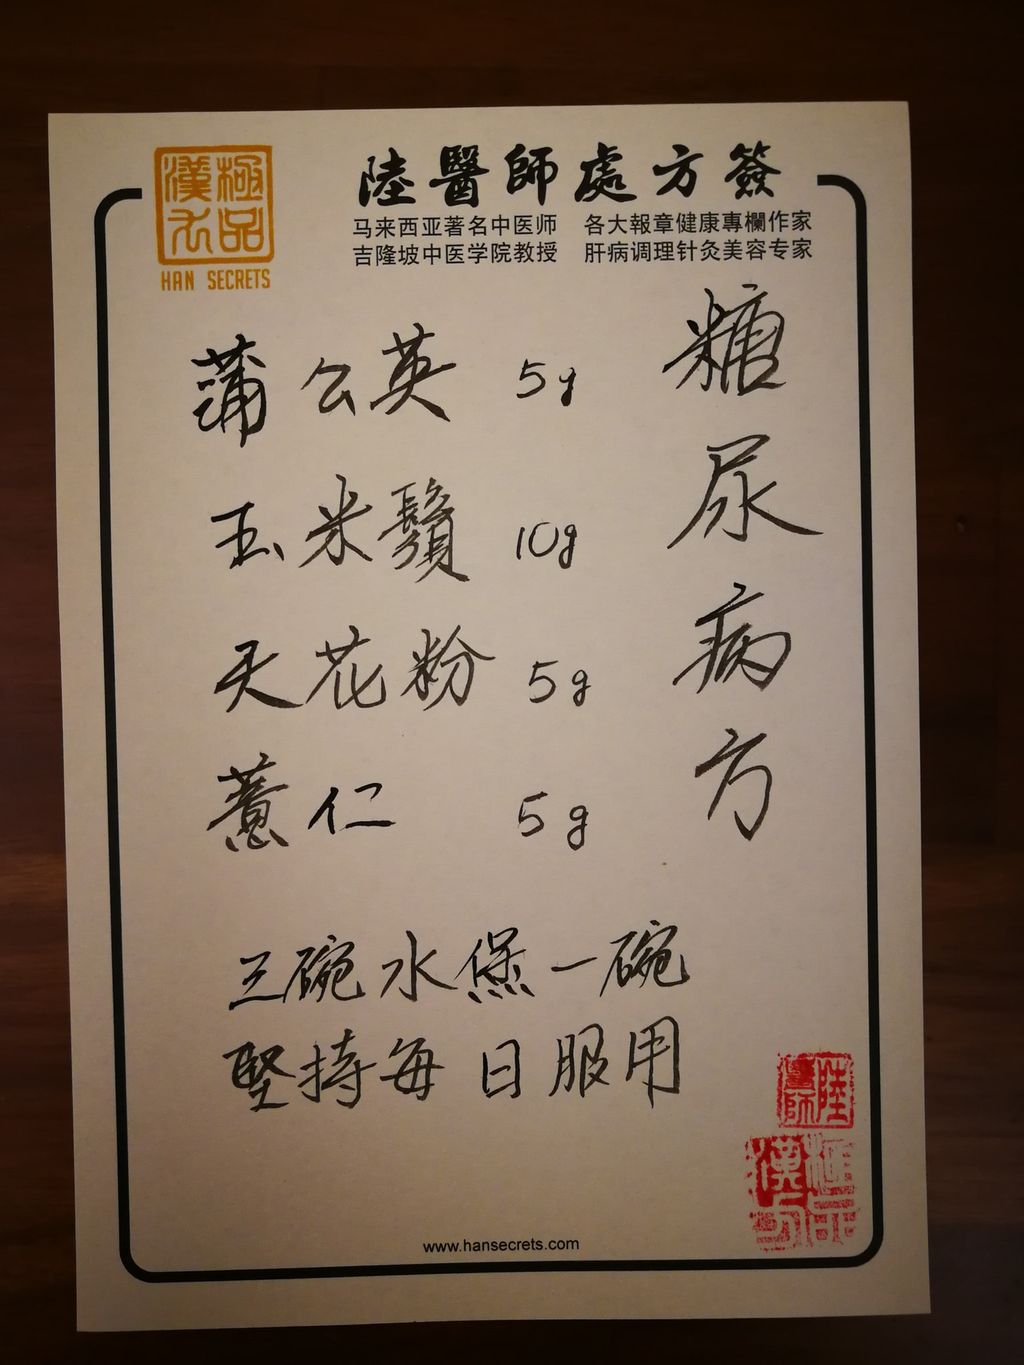 陸醫師處方簽
马来西亚著名中医师 各大報章健康專欄作家
吉隆坡中医学院教授 肝病调理针灸美容专家
極品
漢方
HAN SECRETS
糖尿病方
蒲公英 5g
玉米鬚 10g
天花粉 5g
薏仁 5g
三碗水煲一碗
堅持每日服用
陸醫師
極品漢方
www.hansecrets.com